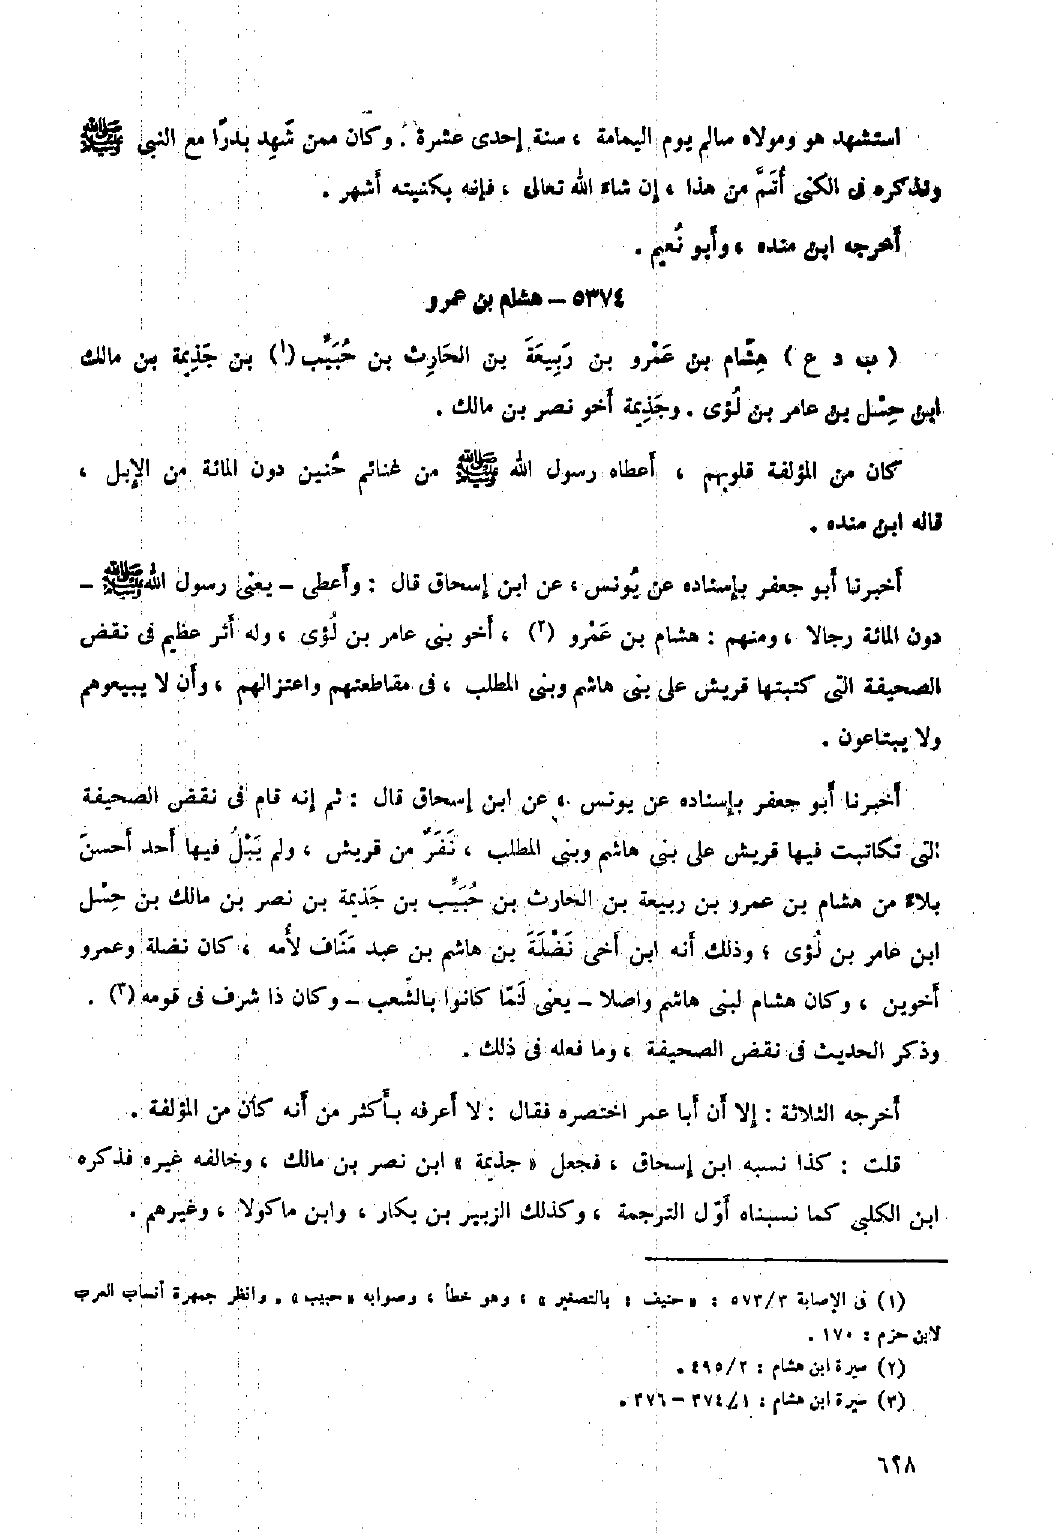 استشهد هو ومولاه سالم يوم اليمامة ، سنة إحدى عشرة . وكان ممن شَهِد بدرًا مع النبى ﷺ
ونذكره فى الكنى أَتَمَّ من هذا ، إن شاءَ الله تعالى ، فإنه بكنيته أشهر .
أَخرجه ابن منده ، وأَبو نُعيم .
٥٣٧٤ – هشام بن عمرو
( ب د ع ) هِشَام بن عَمْرو بن رَبِيعَةَ بن الحَارِث بن حُبَيِّب (١) بن جَذِيمة بن مالك
ابن حِسْل بن عامر بن لُؤى . وجَذِيمة أَخو نصر بن مالك .
كان من المؤلفة قلوبهم ، أَعطاه رسول الله ﷺ من غنائم حُنين دون المائة من الإبل ،
قاله ابن منده .
أَخبرنا أَبو جعفر بإسناده عن يُونس ، عن ابن إسحاق قال : وأَعطى – يعنى رسول الله ﷺ –
دون المائة رجالا ، ومنهم : هشام بن عَمْرو (٢) ، أَخو بنى عامر بن لُؤى ، وله أَثر عظيم فى نقض
الصحيفة التى كتبتها قريش على بنى هاشم وبنى المطلب ، فى مقاطعتهم واعتزالهم ، وأَن لا يبيعوهم
ولا يبتاعون .
أَخبرنا أَبو جعفر بإسناده عن يونس ، عن ابن إسحاق قال : ثم إنه قام فى نقض الصحيفة
التى تكاتبت فيها قريش على بنى هاشم وبنى المطلب ، نَفَرٌ من قريش ، ولم يَبْلُ فيها أَحد أَحسنَ
بلاءً من هشام بن عمرو بن ربيعة بن الحارث بن حُبَيِّب بن جَذيمة بن نصر بن مالك بن حِسْل
ابن عامر بن لُؤى ؛ وذلك أَنه ابن أَخى نَضْلَةَ بن هاشم بن عبد مَنَاف لأُمه ، كان نضلة وعمرو
أَخوين ، وكان هشام لبنى هاشم واصلا – يعنى لَمّا كانوا بالشِّعب – وكان ذا شرف فى قومه (٣) .
وذكر الحديث فى نقض الصحيفة ، وما فعله فى ذلك .
أَخرجه الثلاثة : إلا أَن أَبا عمر اختصره فقال : لا أَعرفه بأَكثر من أَنه كان من المؤلفة .
قلت : كذا نسبه ابن إسحاق ، فجعل « جذيمة » ابن نصر بن مالك ، وخالفه غيره فذكره
ابن الكلبى كما نسبناه أَوّل الترجمة ، وكذلك الزبير بن بكار ، وابن ماكولا ، وغيرهم .
(١) فى الإصابة ٥٧٣/٣ : « حنيف : بالتصغير » ، وهو خطأ ، وصوابه « حبيب » . وانظر جمهرة أنساب العرب
لابن حزم : ١٧٠ .
(٢) سيرة ابن هشام : ٤٩٥/٢ .
(٣) سيرة ابن هشام : ٣٧٤/١ – ٣٧٦ .
٦٢٨